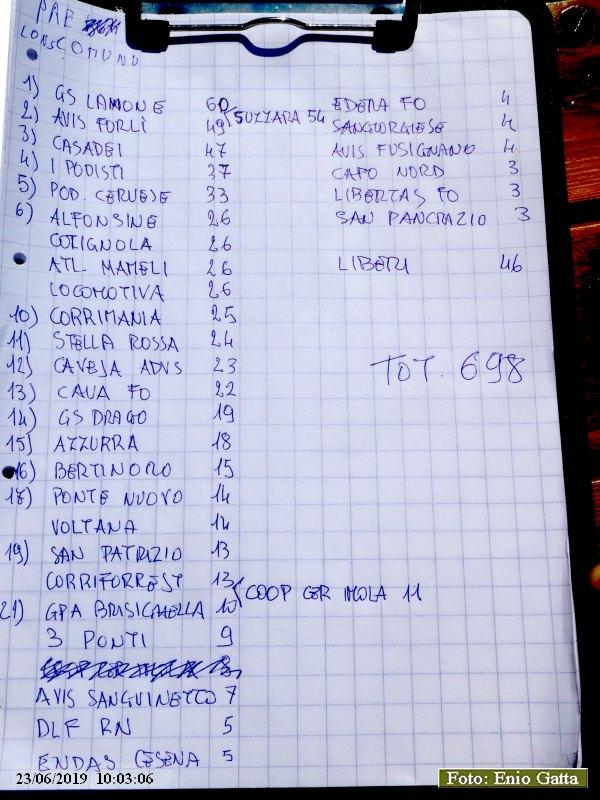 PAR
CONSCOMUNU
1) GS LAMONE 60
SUZZARA 54
2) AVIS FORLÌ 49
3) CASADEI 47
4) I PODISTI 37
5) POD. CERVESE 33
6) ALFONSINE 26
COTIGNOLA 26
ATL. MAMELI 26
LOCOMOTIVA 26
10) CORRIMANIA 25
11) STELLA ROSSA 24
12) CAVEJA ADVS 23
13) CAVA FO 22
14) GS DRAGO 19
15) AZZURRA 18
16) BERTINORO 15
17) PONTE NUOVO 14
VOLTANA 14
19) SAN PATRIZIO 13
CORRIFORREST 13
COOP CER IMOLA 11
21) GPA BRISIGHELLA 10
3 PONTI 9
AVIS SANGUINETTO 7
DLF RN 5
ENDAS CESENA 5
EDERA FO 4
SANGIORGESE 4
AVIS FUSIGNANO 4
CAPO NORD 3
LIBERTAS FO 3
SAN PANCRAZIO 3
LIBERI 46
TOT. 698
23/06/2019 10:03:06
Foto: Enio Gatta